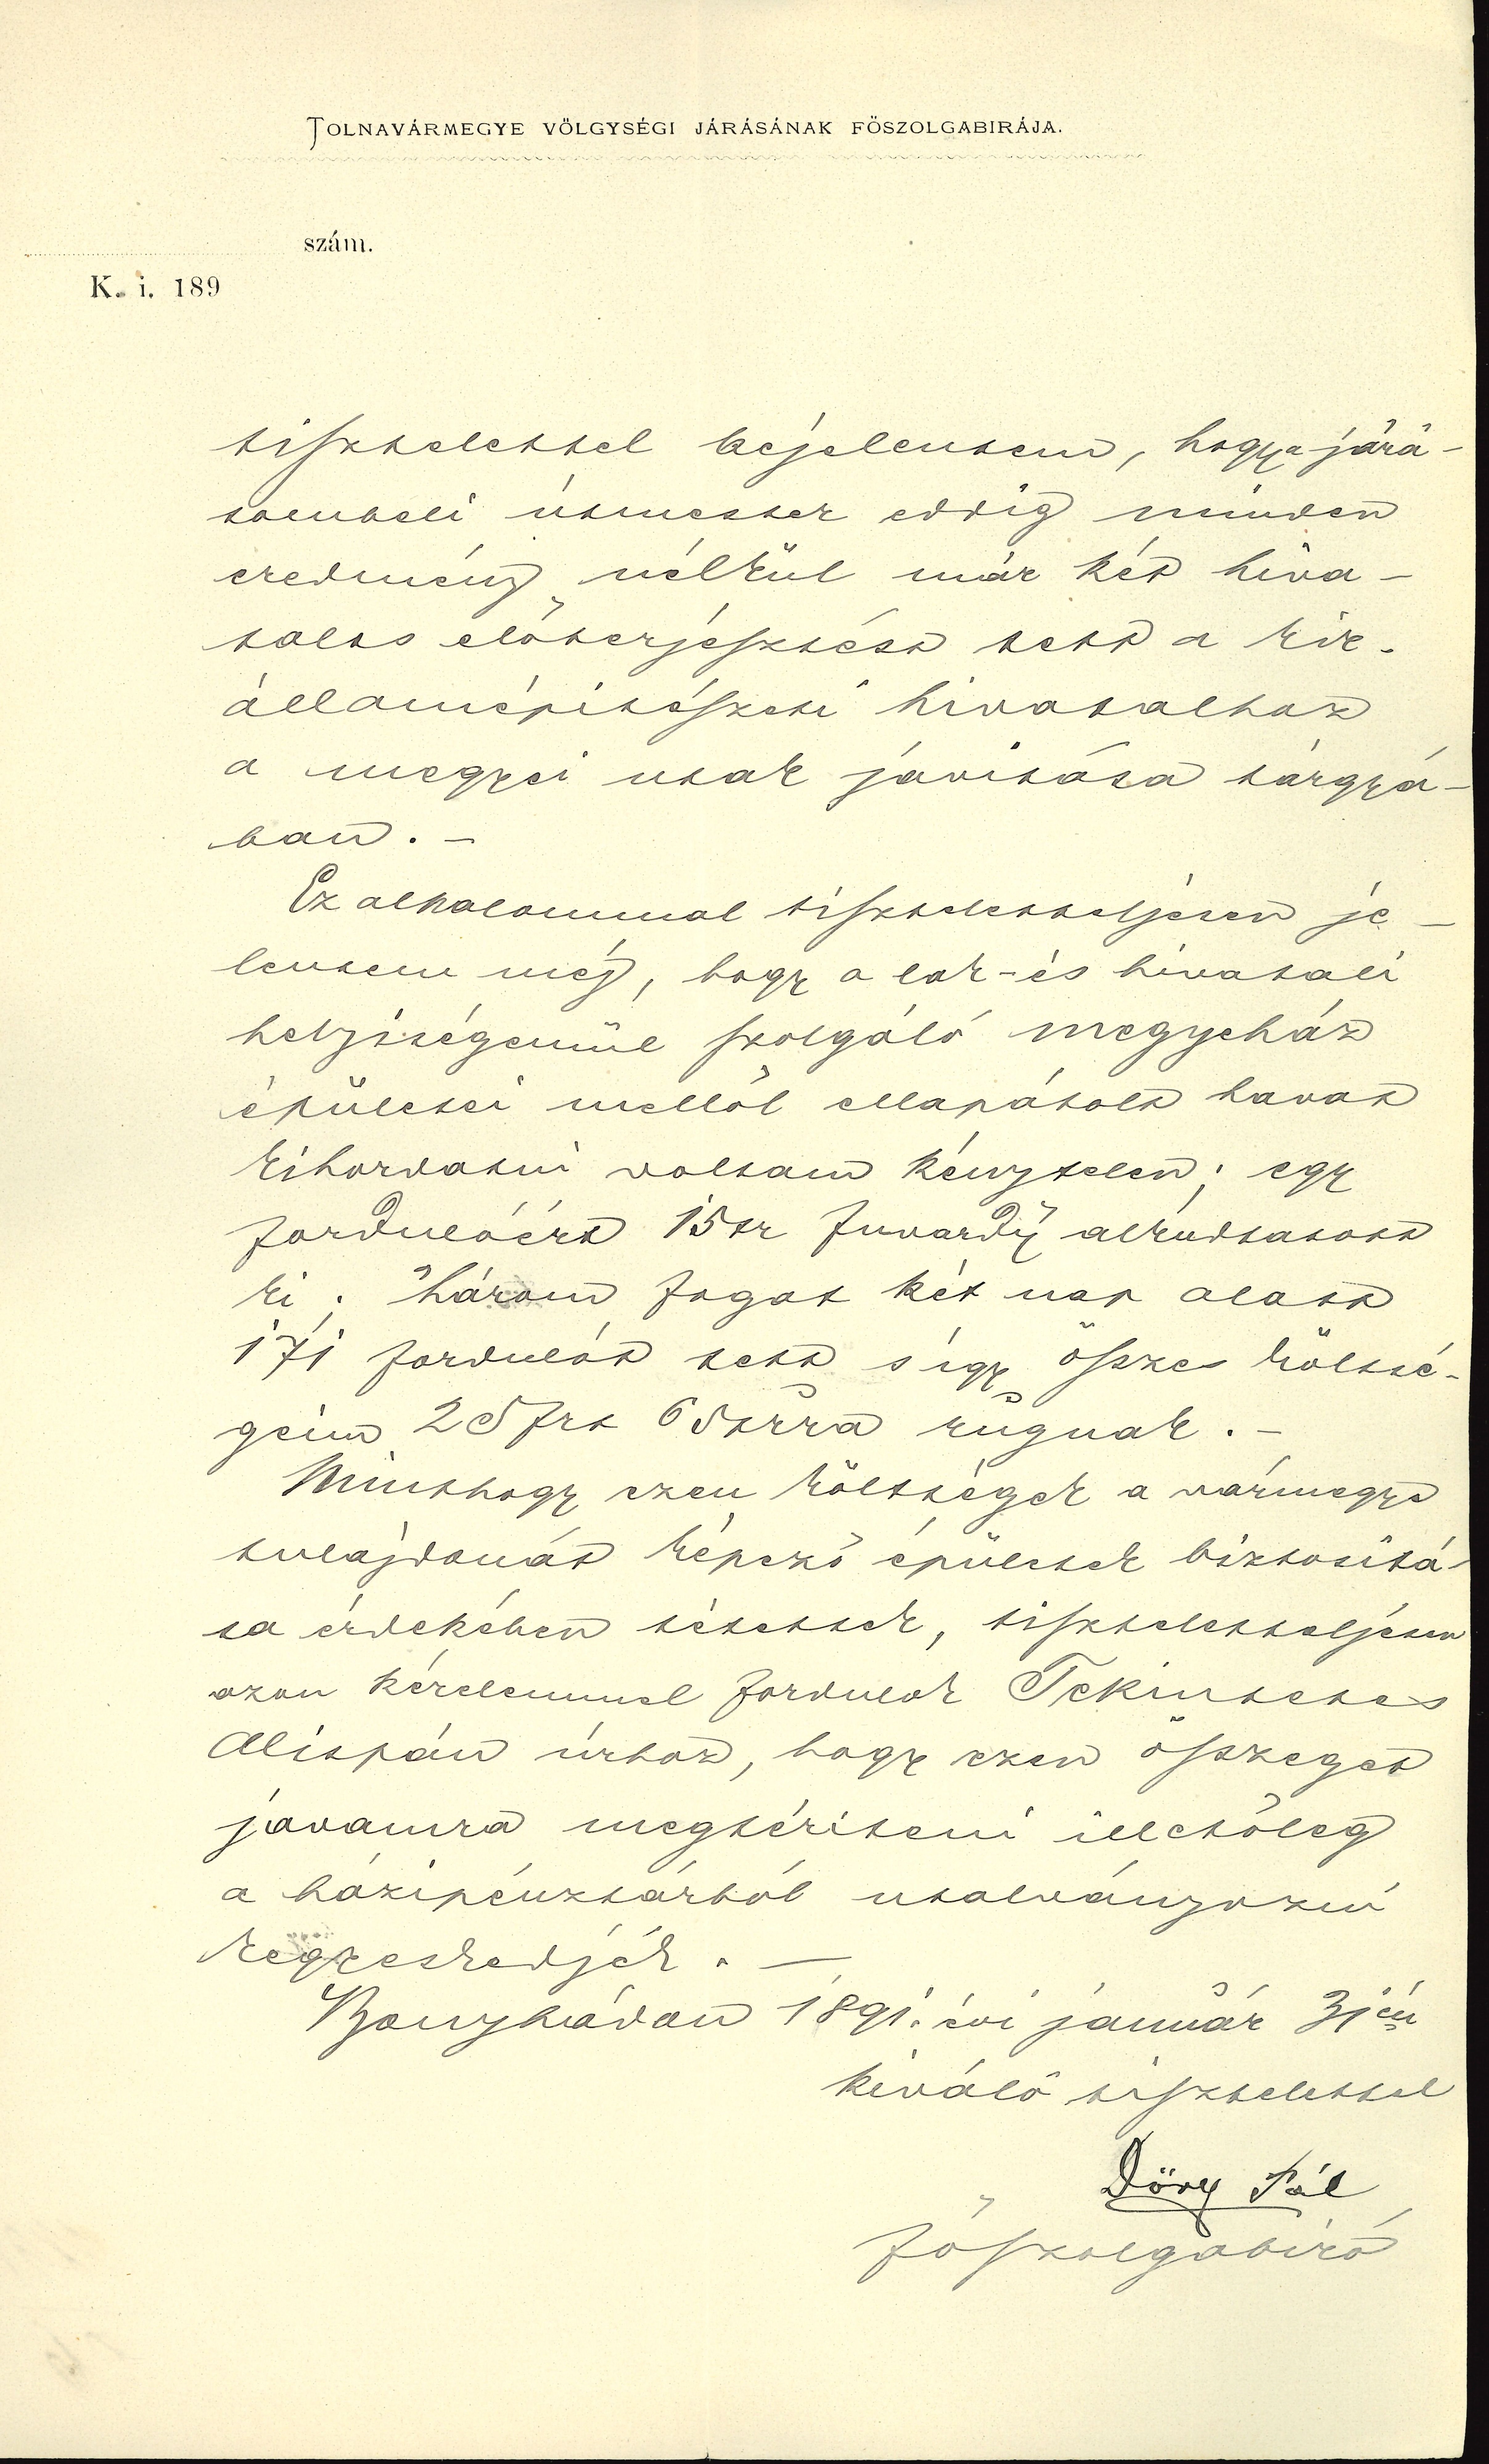 TOLNAVÁRMEGYE VÖLGYSÉGI JÁRÁSÁNAK FŐSZOLGABIRÁJA.
szám.
K. i. 189
tisztelettel bejelentem, hogy a járá-
sombeli útmester eddig minden
eredmény nélkül már két hiva-
talos előterjesztést tett a kir.
államépitészeti hivatalhoz
a megyei utak javitása tárgyá-
ban. –
Ez alkalommal tisztelettelyesen je-
lentem még, hogy a lak- és hivatali
helyiségemül szolgáló megyeház
épületei mellől ellapátolt havat
kihordatni voltam kénytelen; egy
fordulóért 15 kr fuvardij alkudtatott
ki. Három fogat két nap alatt
171 fordulót tett s igy összes költsé-
geim 25 frt 65 krra rúgnak. –
Minthogy ezen költségek a vármegye
tulajdonát képező épületek biztositá-
sa érdekében tétettek, tisztelettelyesen
azon kérelemmel fordulok Tekintetes
Alispán úrhoz, hogy ezen összeget
javamra megtériteni illetőleg
a házipénztárból utalványozni
kegyeskedjék. –
Bonyhádon 1891. évi január 3jén
kiváló tisztelettel
Döry Pál
főszolgabiró